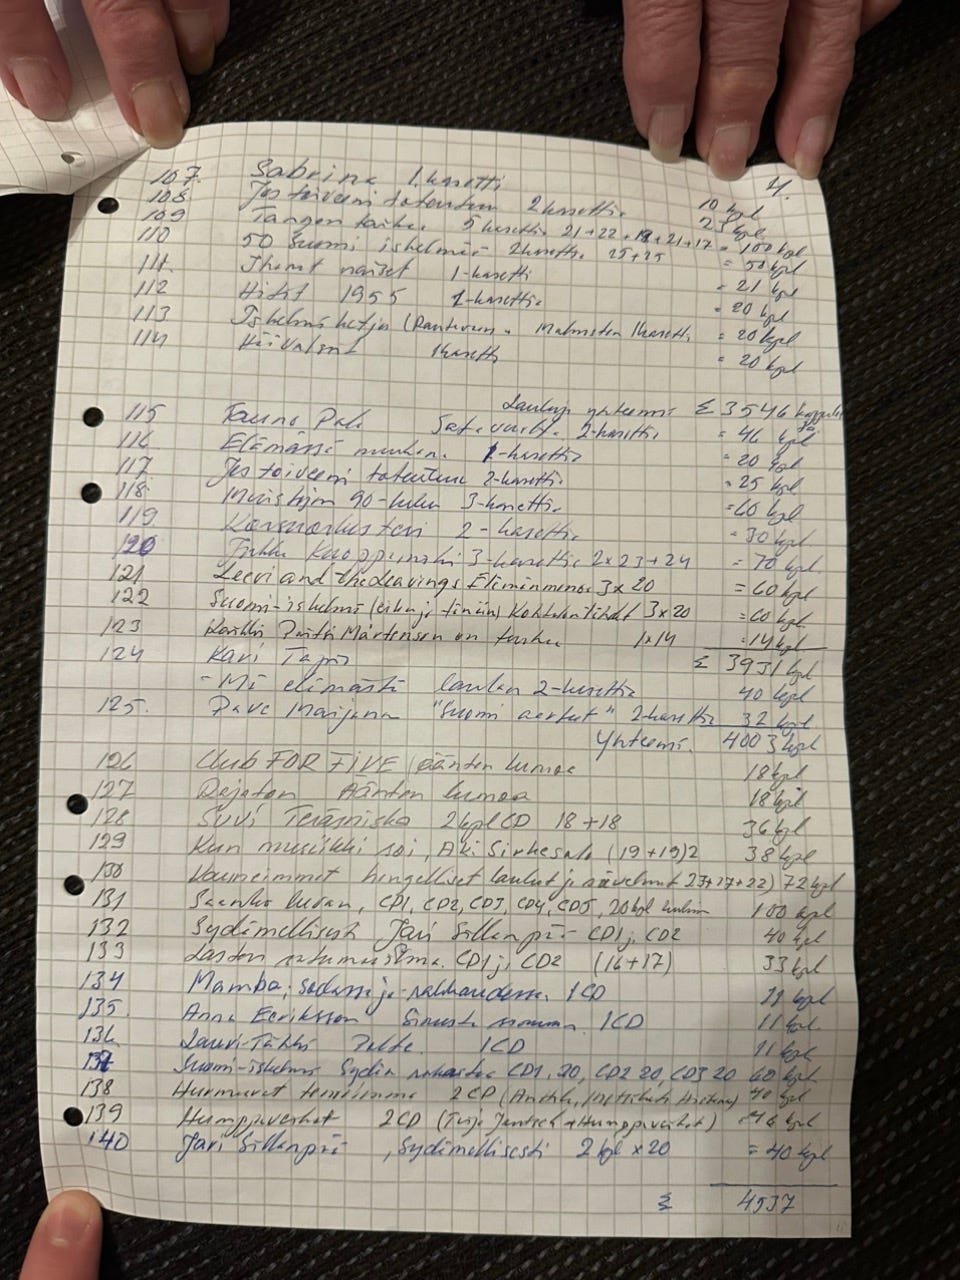 4.
107. Sabrina 1. kasetti 10 kpl
108 Jos toiveeni toteutuu 2 kasettia 25 kpl
109 Tangon taika. 5 kasettia 21+22+19+21+17 = 100 kpl
110 50 Suomi iskelmää 2 kasettia 25+25 = 50 kpl
111. naiset 1-kasetti = 21 kpl
112 Hitit 1955 1-kasettia = 20 kpl
113 Iskelmäketju ( Malmsten 1 kasetti = 20 kpl
114 1 kasetti = 20 kpl
Lauluja yhteensä Σ 3546 kappaletta
115 Tauno Palo Satavuotis. 2-kasettia = 46 kpl
116 Elämässä mukana. 1-kasettia = 20 kpl
117 Jos toiveeni toteutuu 2-kasettia = 25 kpl
118. 90-luku 3-kasettia = 60 kpl
119. 2-kasettia = 30 kpl
120 Kuoppamäki 3-kasettia 2x23+24 = 70 kpl
121 Leevi and the Leavings Elämänmeno 3x20 = 60 kpl
122 Suomi-iskelmä (eikuja tiniin) Kohtalon tähdet 3x20 = 60 kpl
123 Kaikki Mårtensen on tuskaa 1x14 = 14 kpl
Σ 3931 kpl
124 Kari Tapio
- Mä elämästä laulan 2-kasettia 40 kpl
125. Pave Maijanen "Suomi aarteet" 2-kasettia 32 kpl
Yhteensä. 4003 kpl
126 Club FOR FIVE äänten lumoa 18 kpl
127 Rajaton Äänten lumoa 18 kpl
128 Suvi Teräsniska 2 kpl CD 18+18 36 kpl
129 Kun musiikki soi, Aki Sirkesalo (19+19)2 38 kpl
130 Kauneimmat hengelliset laulut ja sävelmät 23+27+22) 72 kpl
131 Saanko luvan, CD1, CD2, CD3, CD4, CD5, 20 kpl kukin 100 kpl
132 Sydämellisesti Jari Sillanpää CD1 j. CD2 40 kpl
133 Lasten satumaailma. CD1 j. CD2 (16+17) 33 kpl
134 Mamba; sodassa ja rakkaudessa. 1CD 11 kpl
135. Anna Eriksson Sinusta 1CD 11 kpl
136 Lauri Tähkä 1CD 11 kpl
137 Suomi-iskelmä Sydän rakastaa CD1, 20, CD2 20, CD3 20 60 kpl
138 Hurmaavat 2 CD 40 kpl
139 Humppaveikot 2CD (Humppaveikot)
140 Jari Sillanpää, Sydämellisesti 2 kpl x20 = 40 kpl
Σ 4537